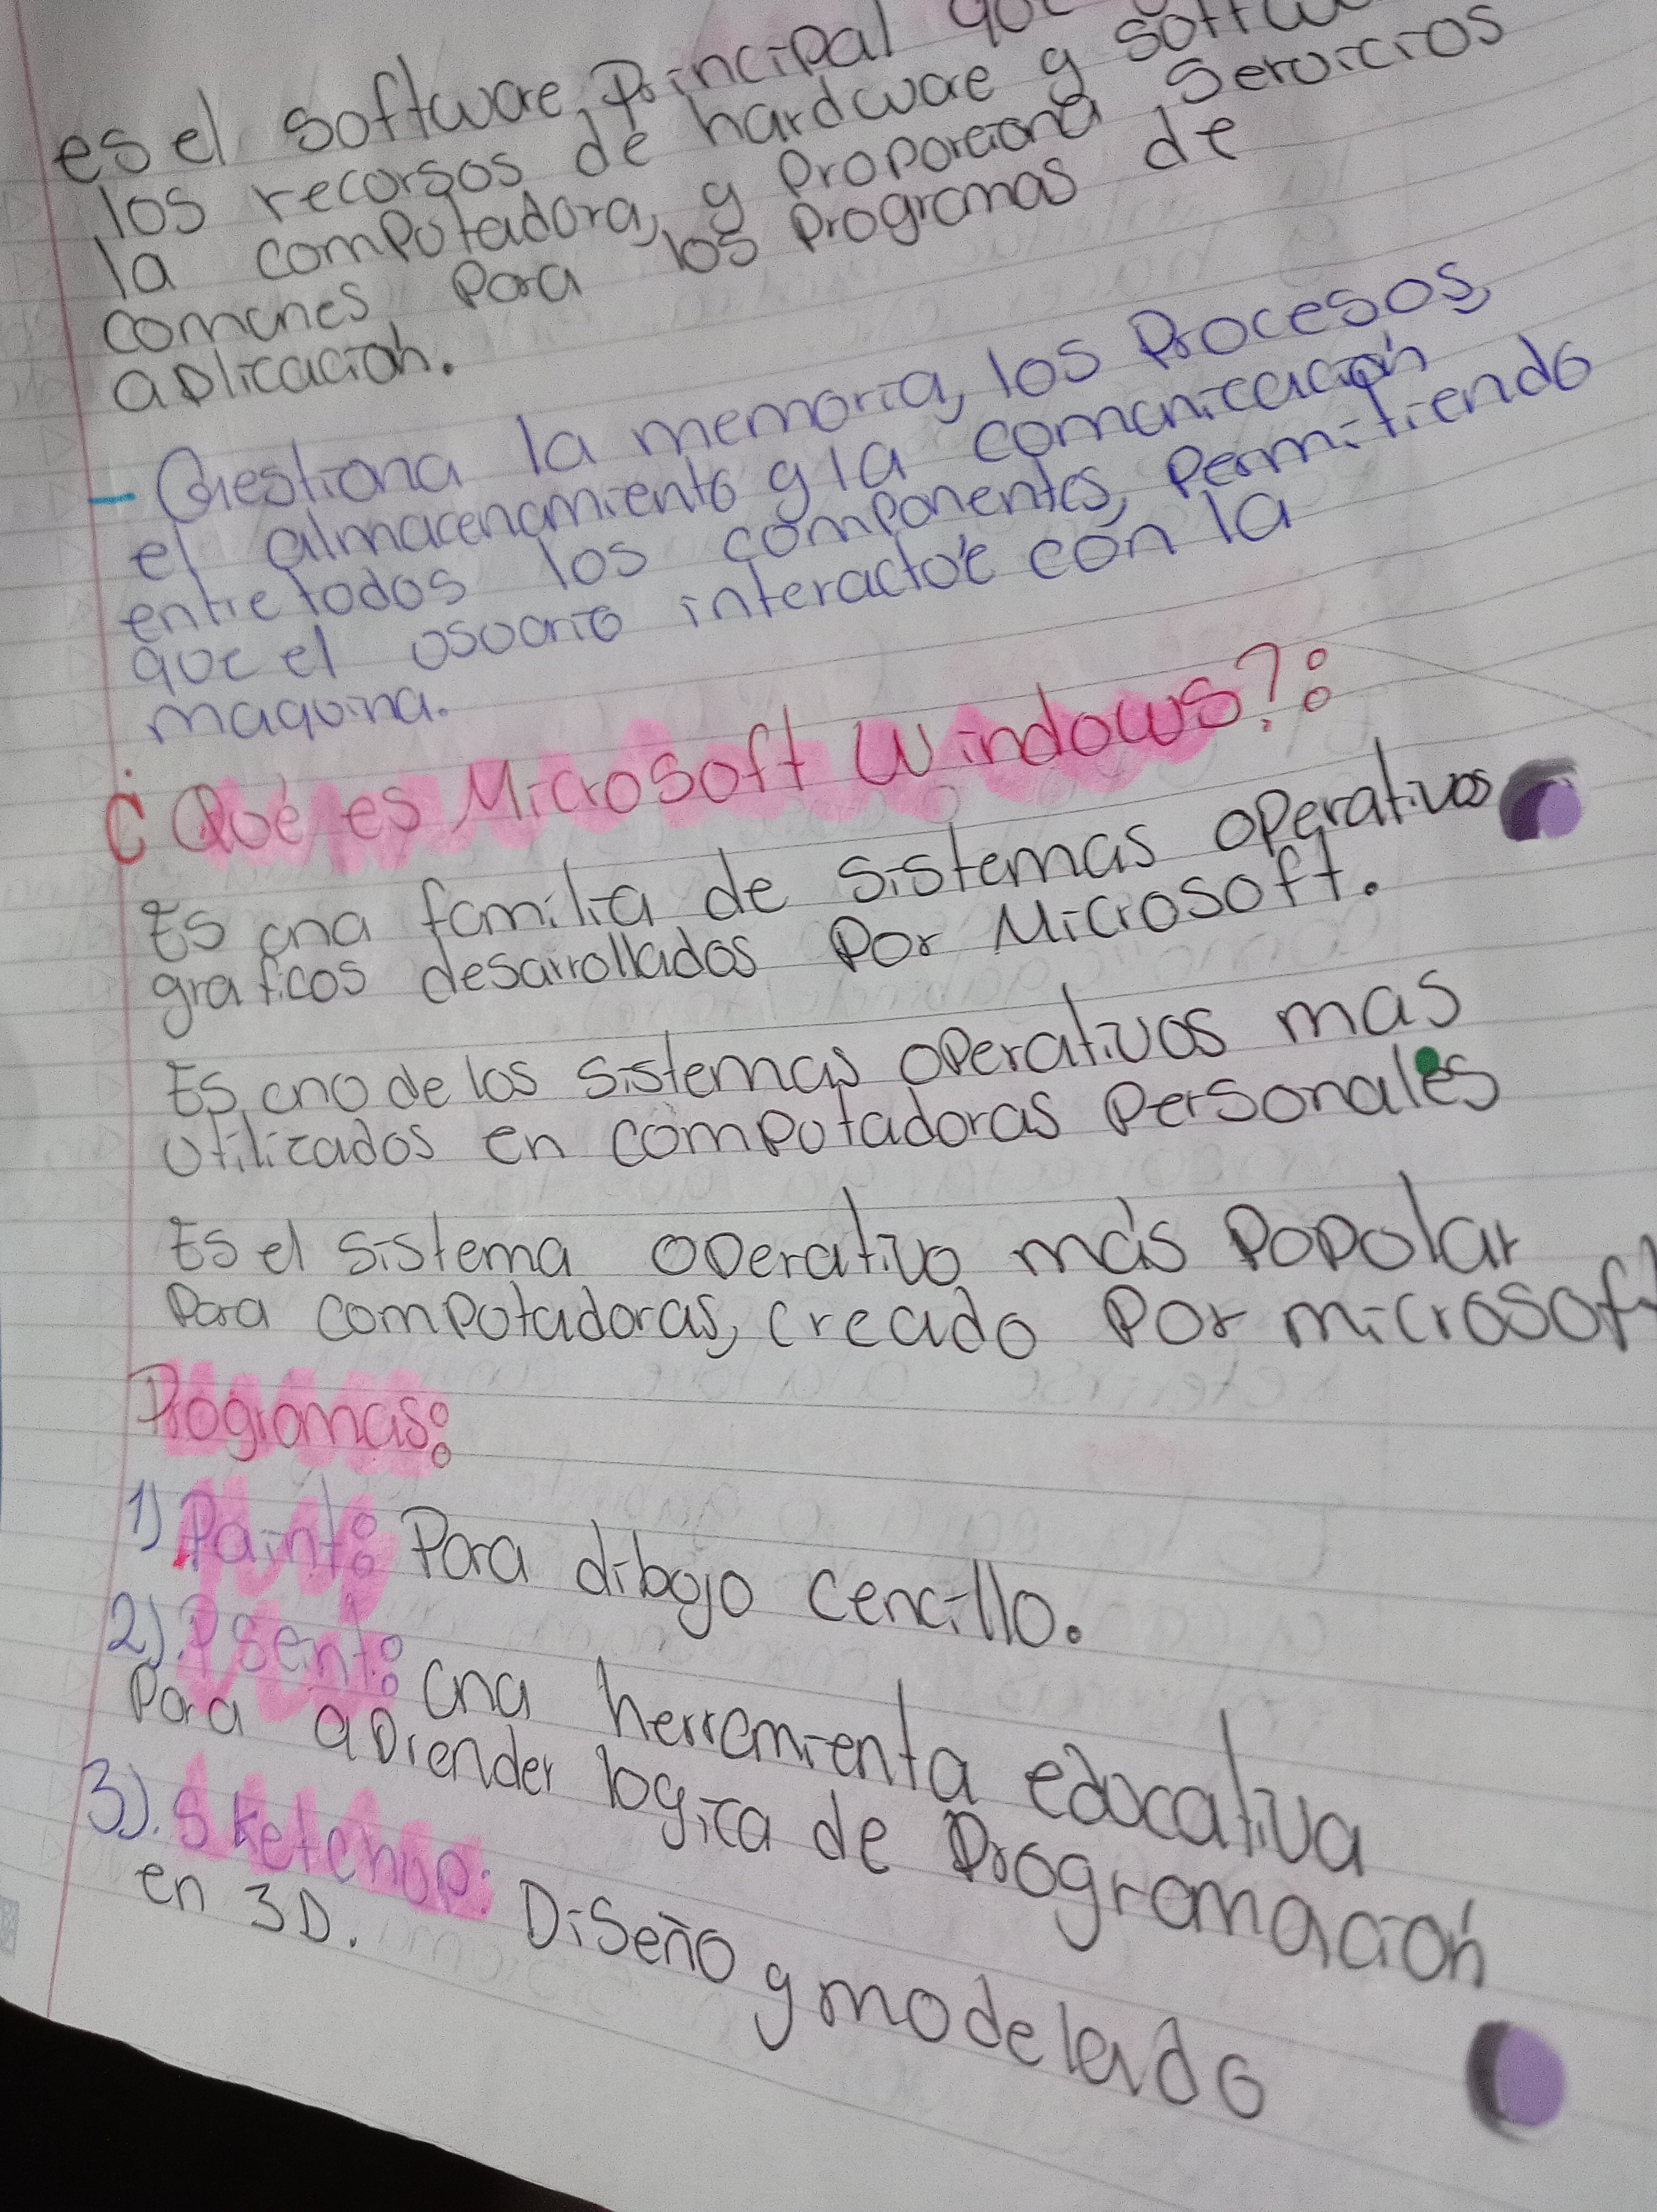 es el software Principal que
los recursos de hardware y softw
la computadora, y Proporciona Servicios
comunes Para los Programas de
aplicación.
- Gestiona la memoria, los Procesos,
el almacenamiento y la comunicación
entre todos los componentes, Permitiendo
que el usuario interactúe con la
maquina.
¿Qué es Microsoft Windows?:
Es una familia de sistemas operativos
graficos desarrollados Por Microsoft.
Es uno de los sistemas operativos mas
utilizados en computadoras Personales
Es el sistema operativo más Popular
Para computadoras, creado Por microsoft
Programas:
1) Paint: Para dibujo cencillo.
2). Psent: una herramienta educativa
Para aprender logica de Programación
3). Sketchup: Diseño y modelado
en 3D.